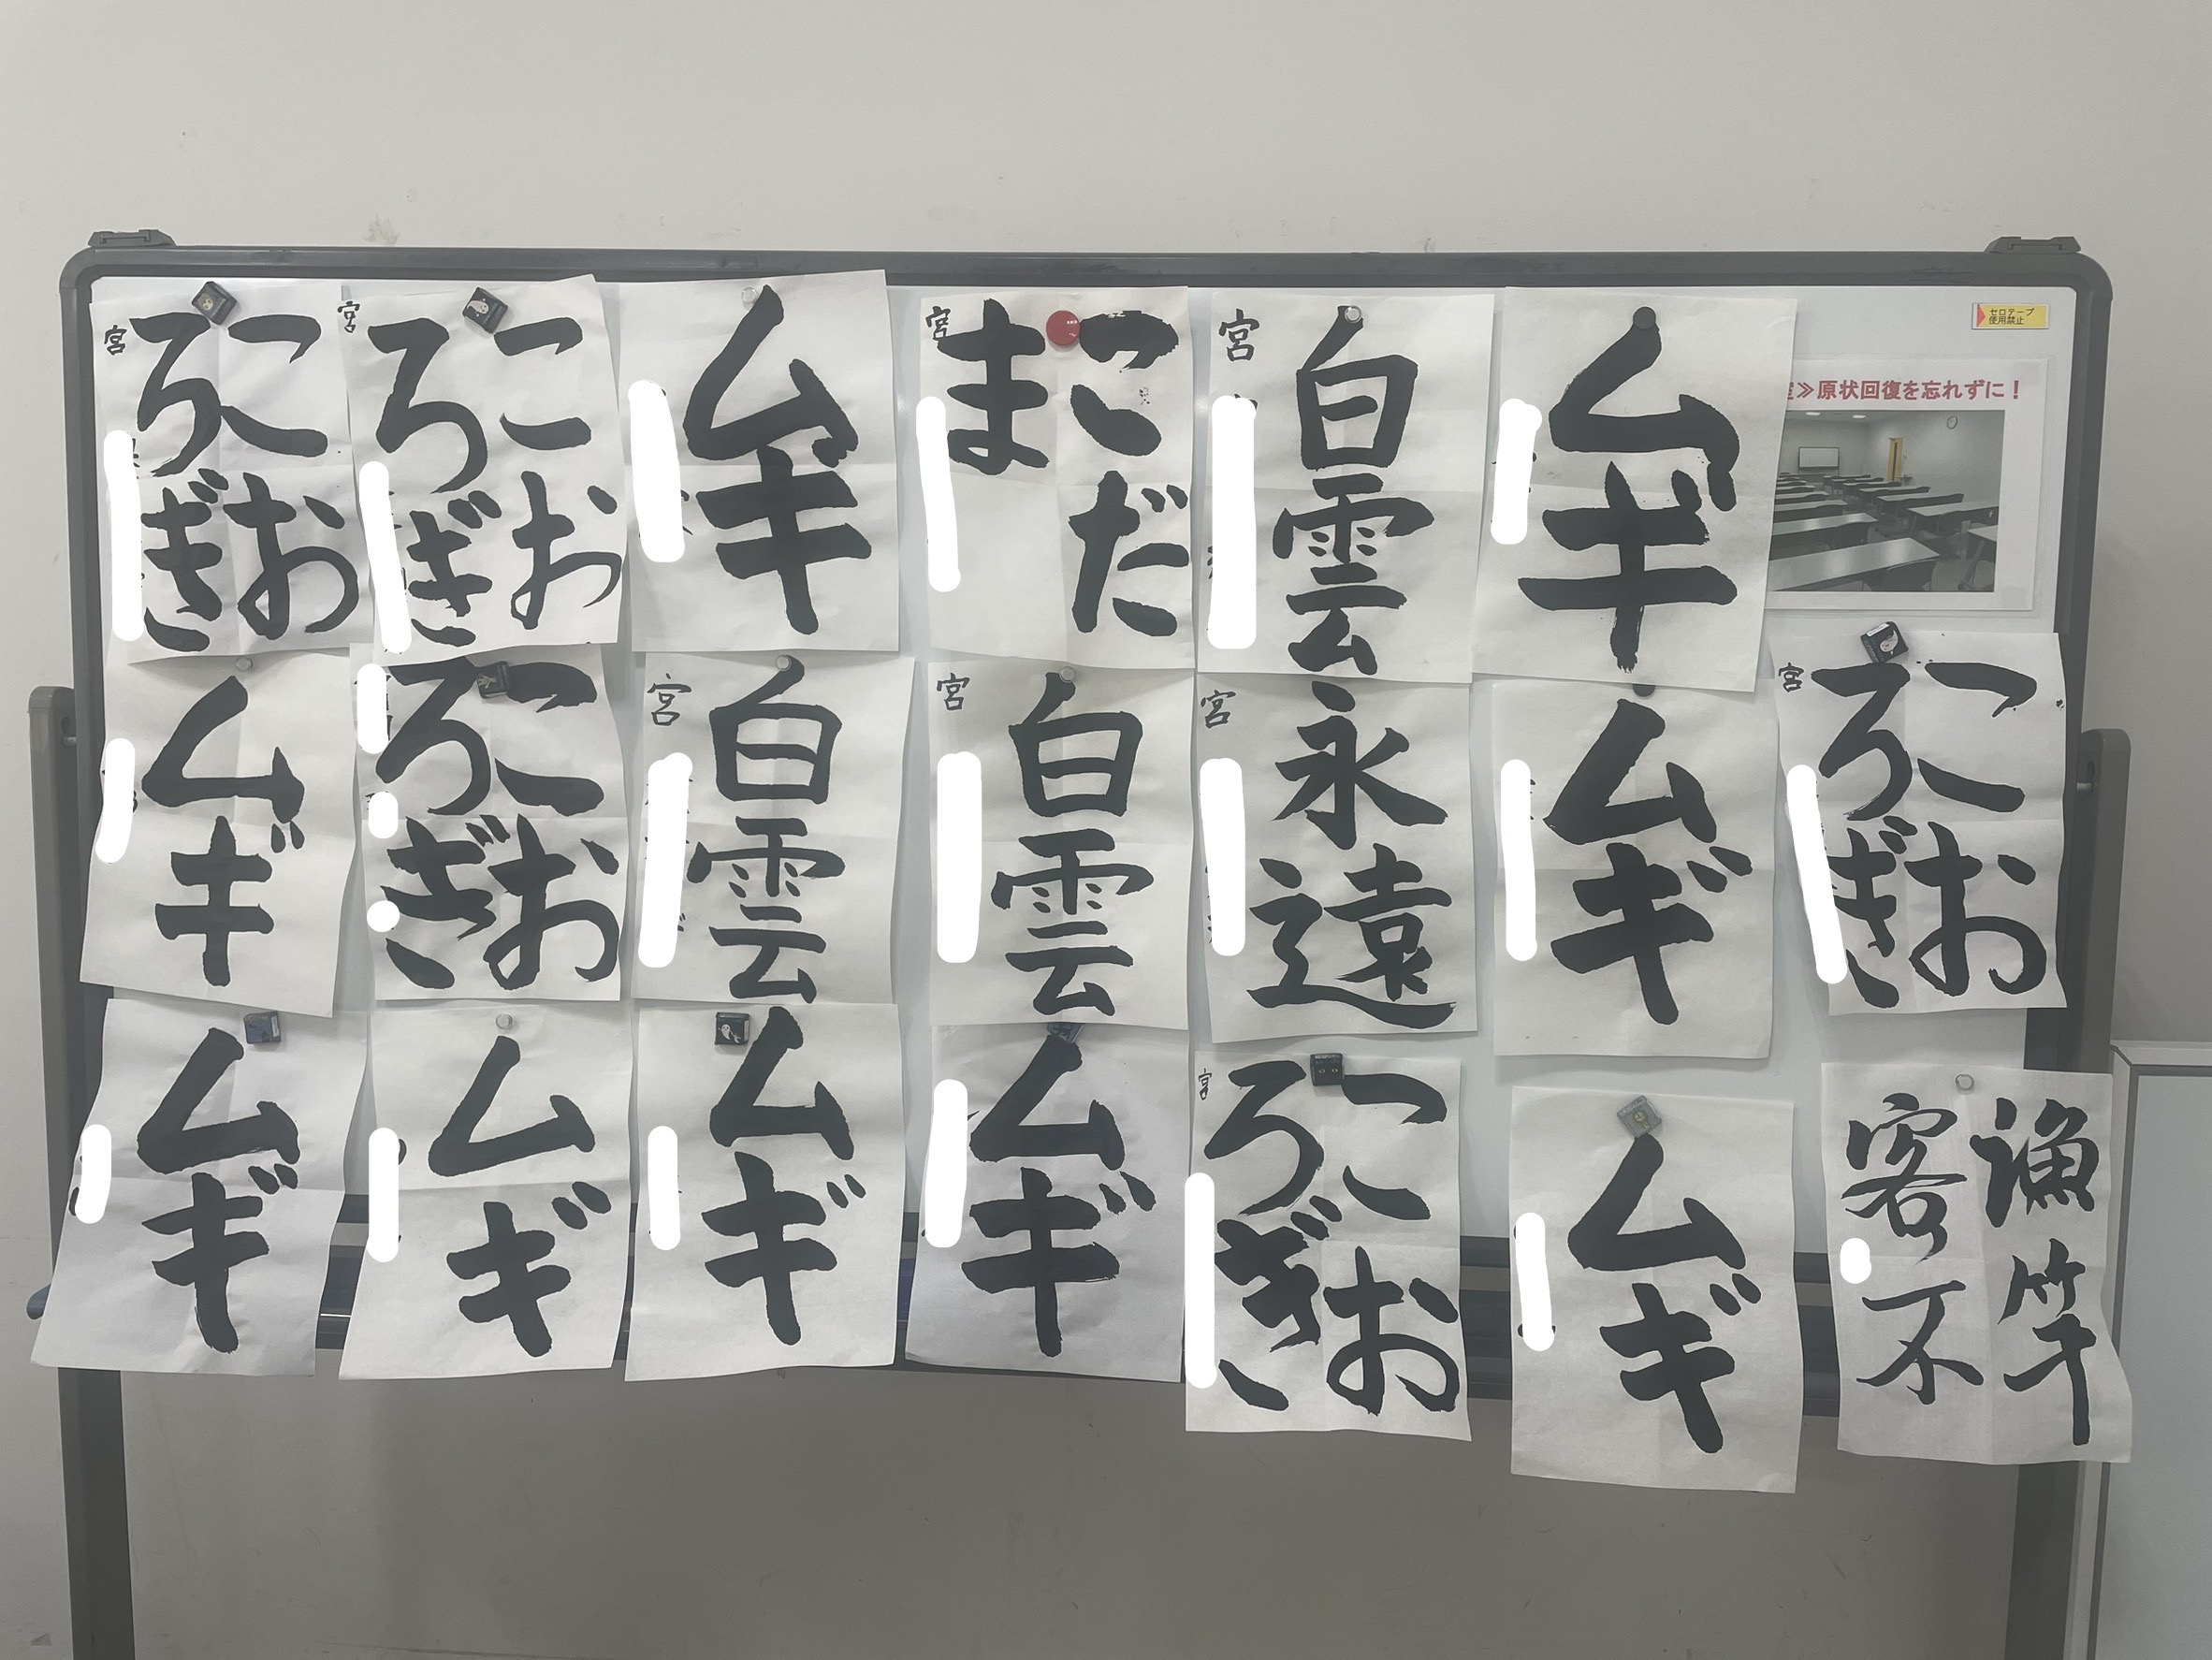 こお
ろぎ
宮
こお
ろぎ
宮
ムギ
こだ
ま
宮
白雲
宮
ムギ
セロテープ
使用禁止
≫原状回復を忘れずに!
ムギ
こお
ろぎ
白雲
宮
白雲
宮
永遠
宮
ムギ
こお
ろぎ
宮
ムギ
ムギ
ムギ
ムギ
こお
ろぎ
宮
ムギ
漁竿
客不